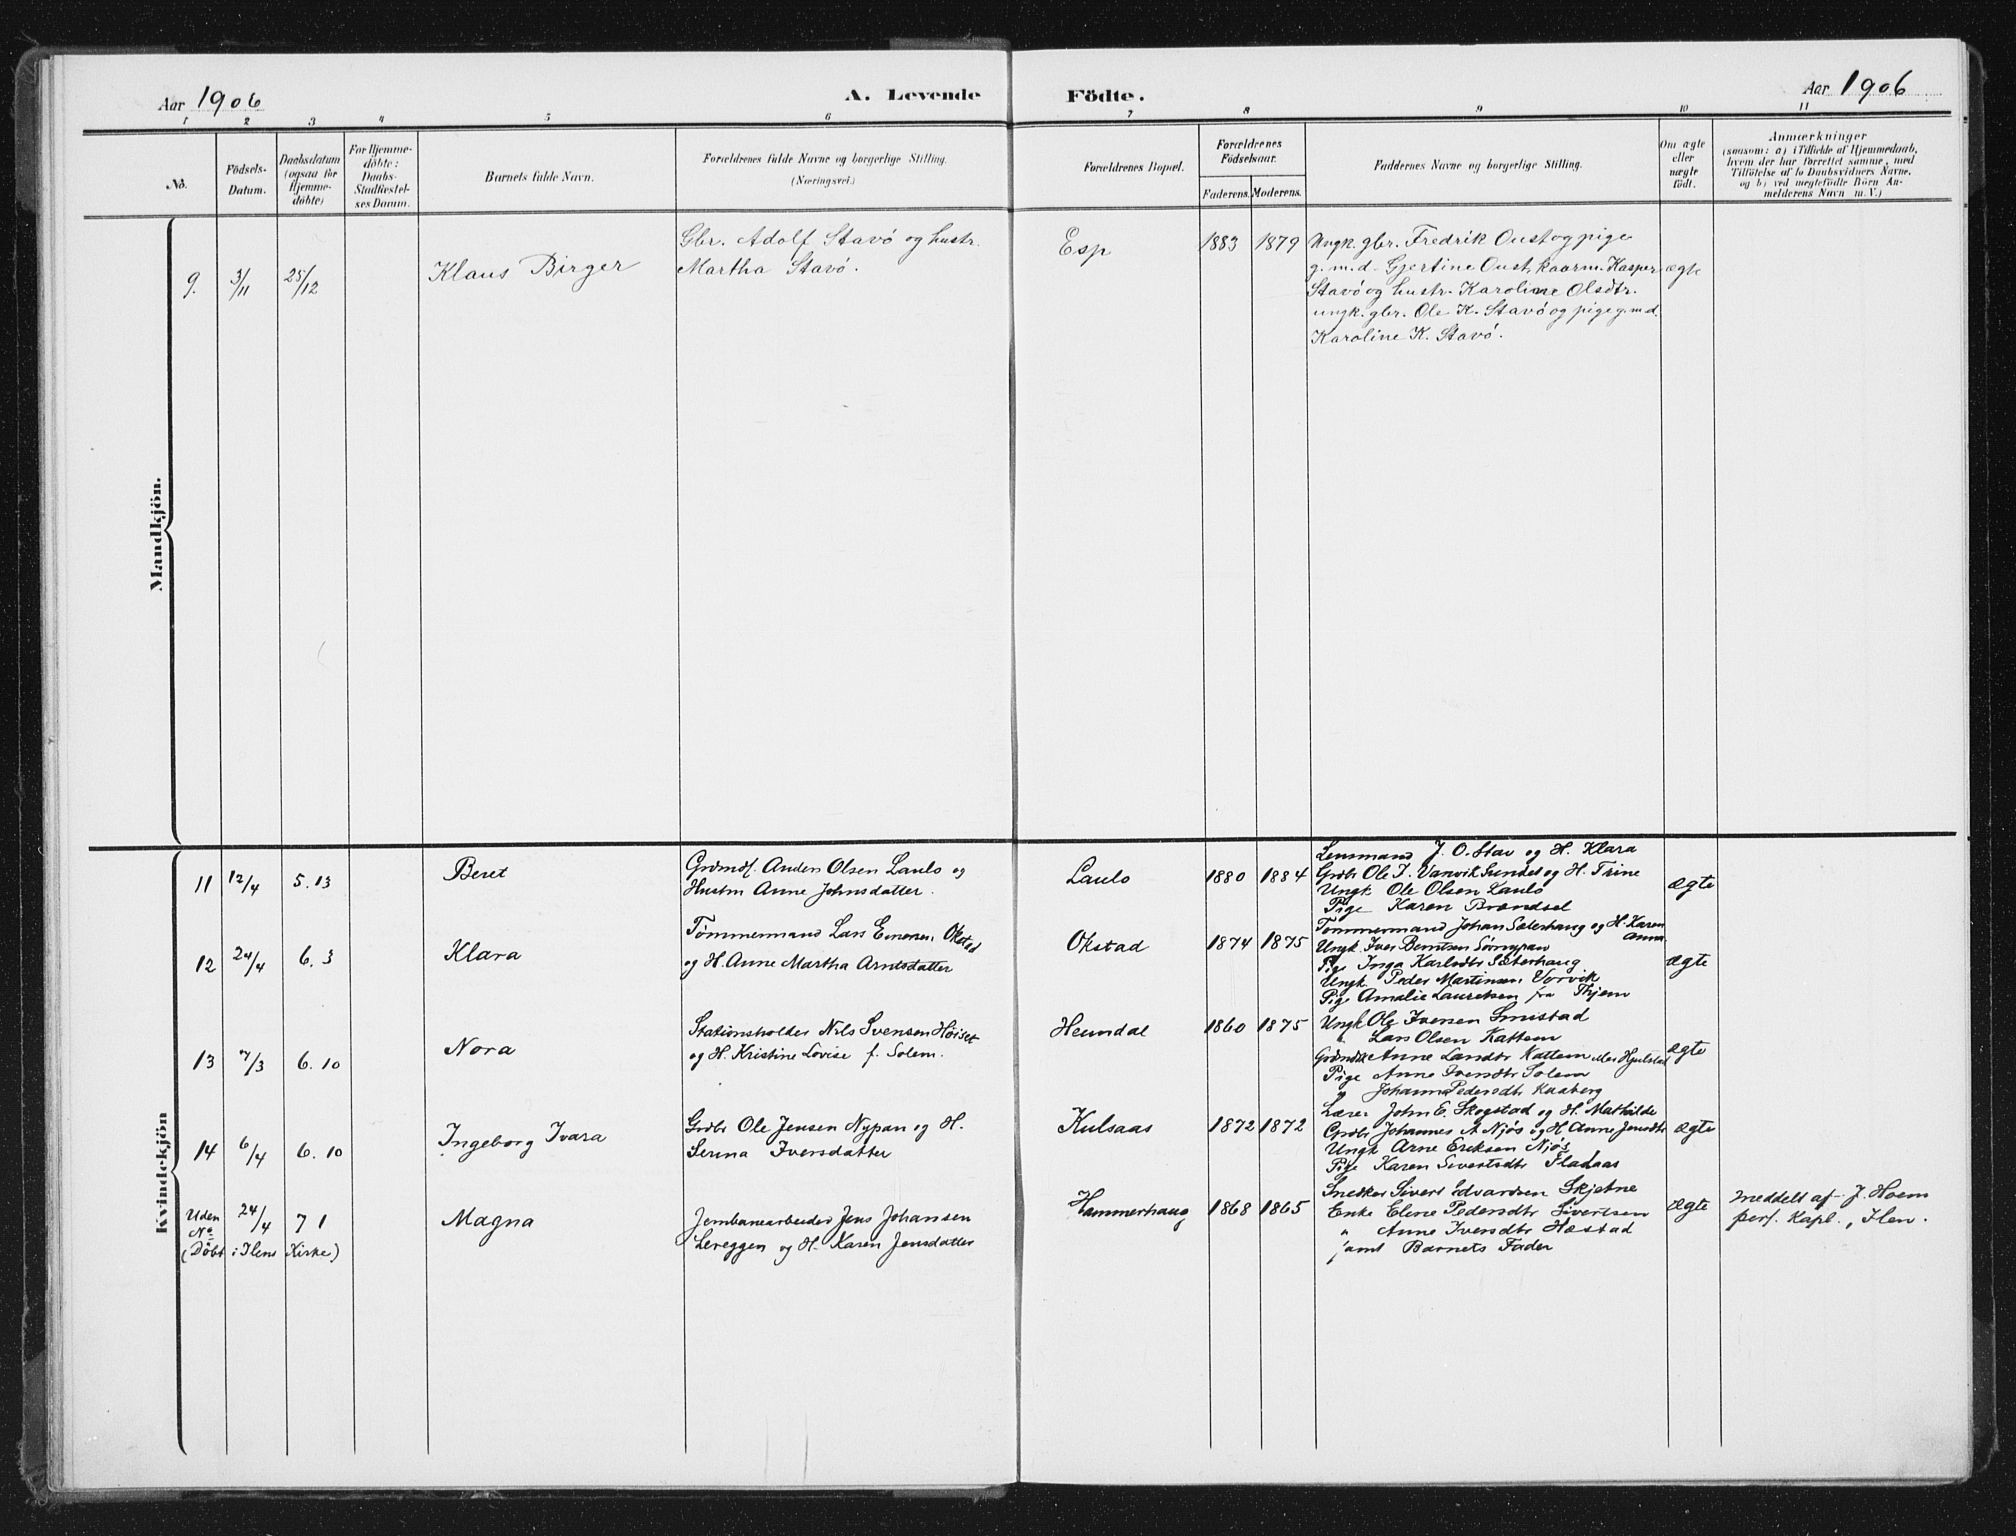 Aar 1906
A. Levende
Födte.
Aar 1906
1 2 3 4 5 6 7 8 9 10 11
No.
Födsels-
Datum.
Daabsdatum
(ogsaa for
Hjemme-
döbte)
For Hjemme-
döbte:
Daabs-
Stadfæstel-
ses Datum.
Barnets fulde Navn.
Forældrenes fulde Navne og borgerlige Stilling.
(Næringsvei.)
Forældrenes Bopæl.
Forældrenes
Födselsaar.
Faderens. Moderens.
Faddernes Navne og borgerlige Stilling.
Om ægte
eller
uægte
födt.
Anmærkninger
(saasom: a) i Tilfælde af Hjemmedaab,
hvem der har forrettet samme, med
Tilföielse af to Daabsvidners Navne.
og b) ved uægtefödte Börn An-
melderens Navn m. V.)
Mandkjön.
9. 3/11 25/12
Klaus Birger
Gbr. Adolf Stavö og hustr.
Martha Stavö.
Esp
1883 1879
Ungk. gbr. Fredrik Oust og pige
g.m.d. Gjertine Oust, kaarm. Kasper
Stavö og hustr. Karoline Olsdtr.
ungk. gbr. Ole K. Stavö og pige g.m.d.
Karoline K. Stavö.
ægte
Kvindekjön
11 12/4 5. 13
Beret
Grdmd. Anders Olsen Laulo og
Hustru Anne Johnsdatter.
Laulo
1880 1884
Lensmand J. O. Stav og H. Klara
Grdbr Ole J. Vanvik Sundet og H. Trine
Ungk. Ole Olsen Laulo
Pige Karen Brændsel
ægte
12 24/4 6. 3
Klara
Tømmermand Lars Einersen Okstad
og H. Anne Martha Arntsdatter
Okstad
1874 1875
Tømmermand Johan Sæterhaug og H. Karen
Anna
Ungk. Iver Berntsen Sørnypan
Pige Inga Karlsdtr Sæterhaug
Ungk. Peder Martinsen Vorvik
Pige Amalie Lauretsen fra Thjem
ægte
13 7/3 6. 10
Nora
Stationsholder Nils Svensen Høiset
og H. Kristine Lovise f. Solem.
Heimdal
1860 1875
Ungk Ole Iversen Smistad
" Lars Olsen Kattem
Grdmdk Anne Larsdtr Kattem eller Hjulstad
Pige Anne Iversdtr Solem
" Johanna Pedersdtr Kuaberg
ægte
14 6/4 6. 10
Ingeborg Ivara
Grdbr Ole Jensen Nypan og H.
Serina Iversdatter
Kulsaas
1872 1872
Lærer John E. Skogstad og H. Mathilde
Grdbr Johannes A Njøs og H Anne Jensdtr
Ungk Arne Eriksen Njøs
Pige Karen Sivertsdtr Fladaas
ægte
Uden
No
24/4 7 1
(Døbt i Ilens Kirke)
Magna
Jernbanearbeider Jens Johansen
Lereggen og H. Karen Jensdatter
Hammerhaug
1868 1865
Snedker Sivert Edvardsen Skjetne
Enke Elene Pedersdtr Sivertsen
" Anne Iversdtr Hæstad
samt Barnets Fader
ægte
meddelt af J. Hoem
pers. Kapl., Ilen.